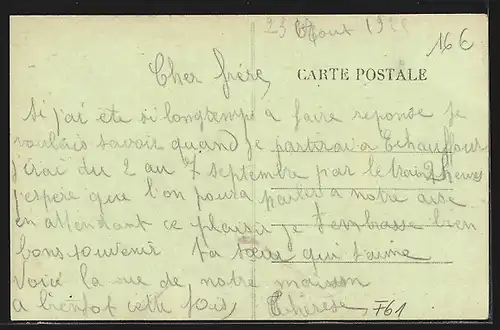 23 Aout 192
16 €
Cher frére,
CARTE POSTALE
Si j'ai été si longtemps a faire reponse je
voulais savoir quand je partirai a Echauffour
j'irai du 2 au 7 septembre par le train 2 heures
j'espère que l'on poura parler a notre aise
en attendant ce plaisir je t'embrasse bien
bons souvenir ta sœur qui t'aime
Voici la rue de notre maison
a bientot cette fois, Thérèse
F61